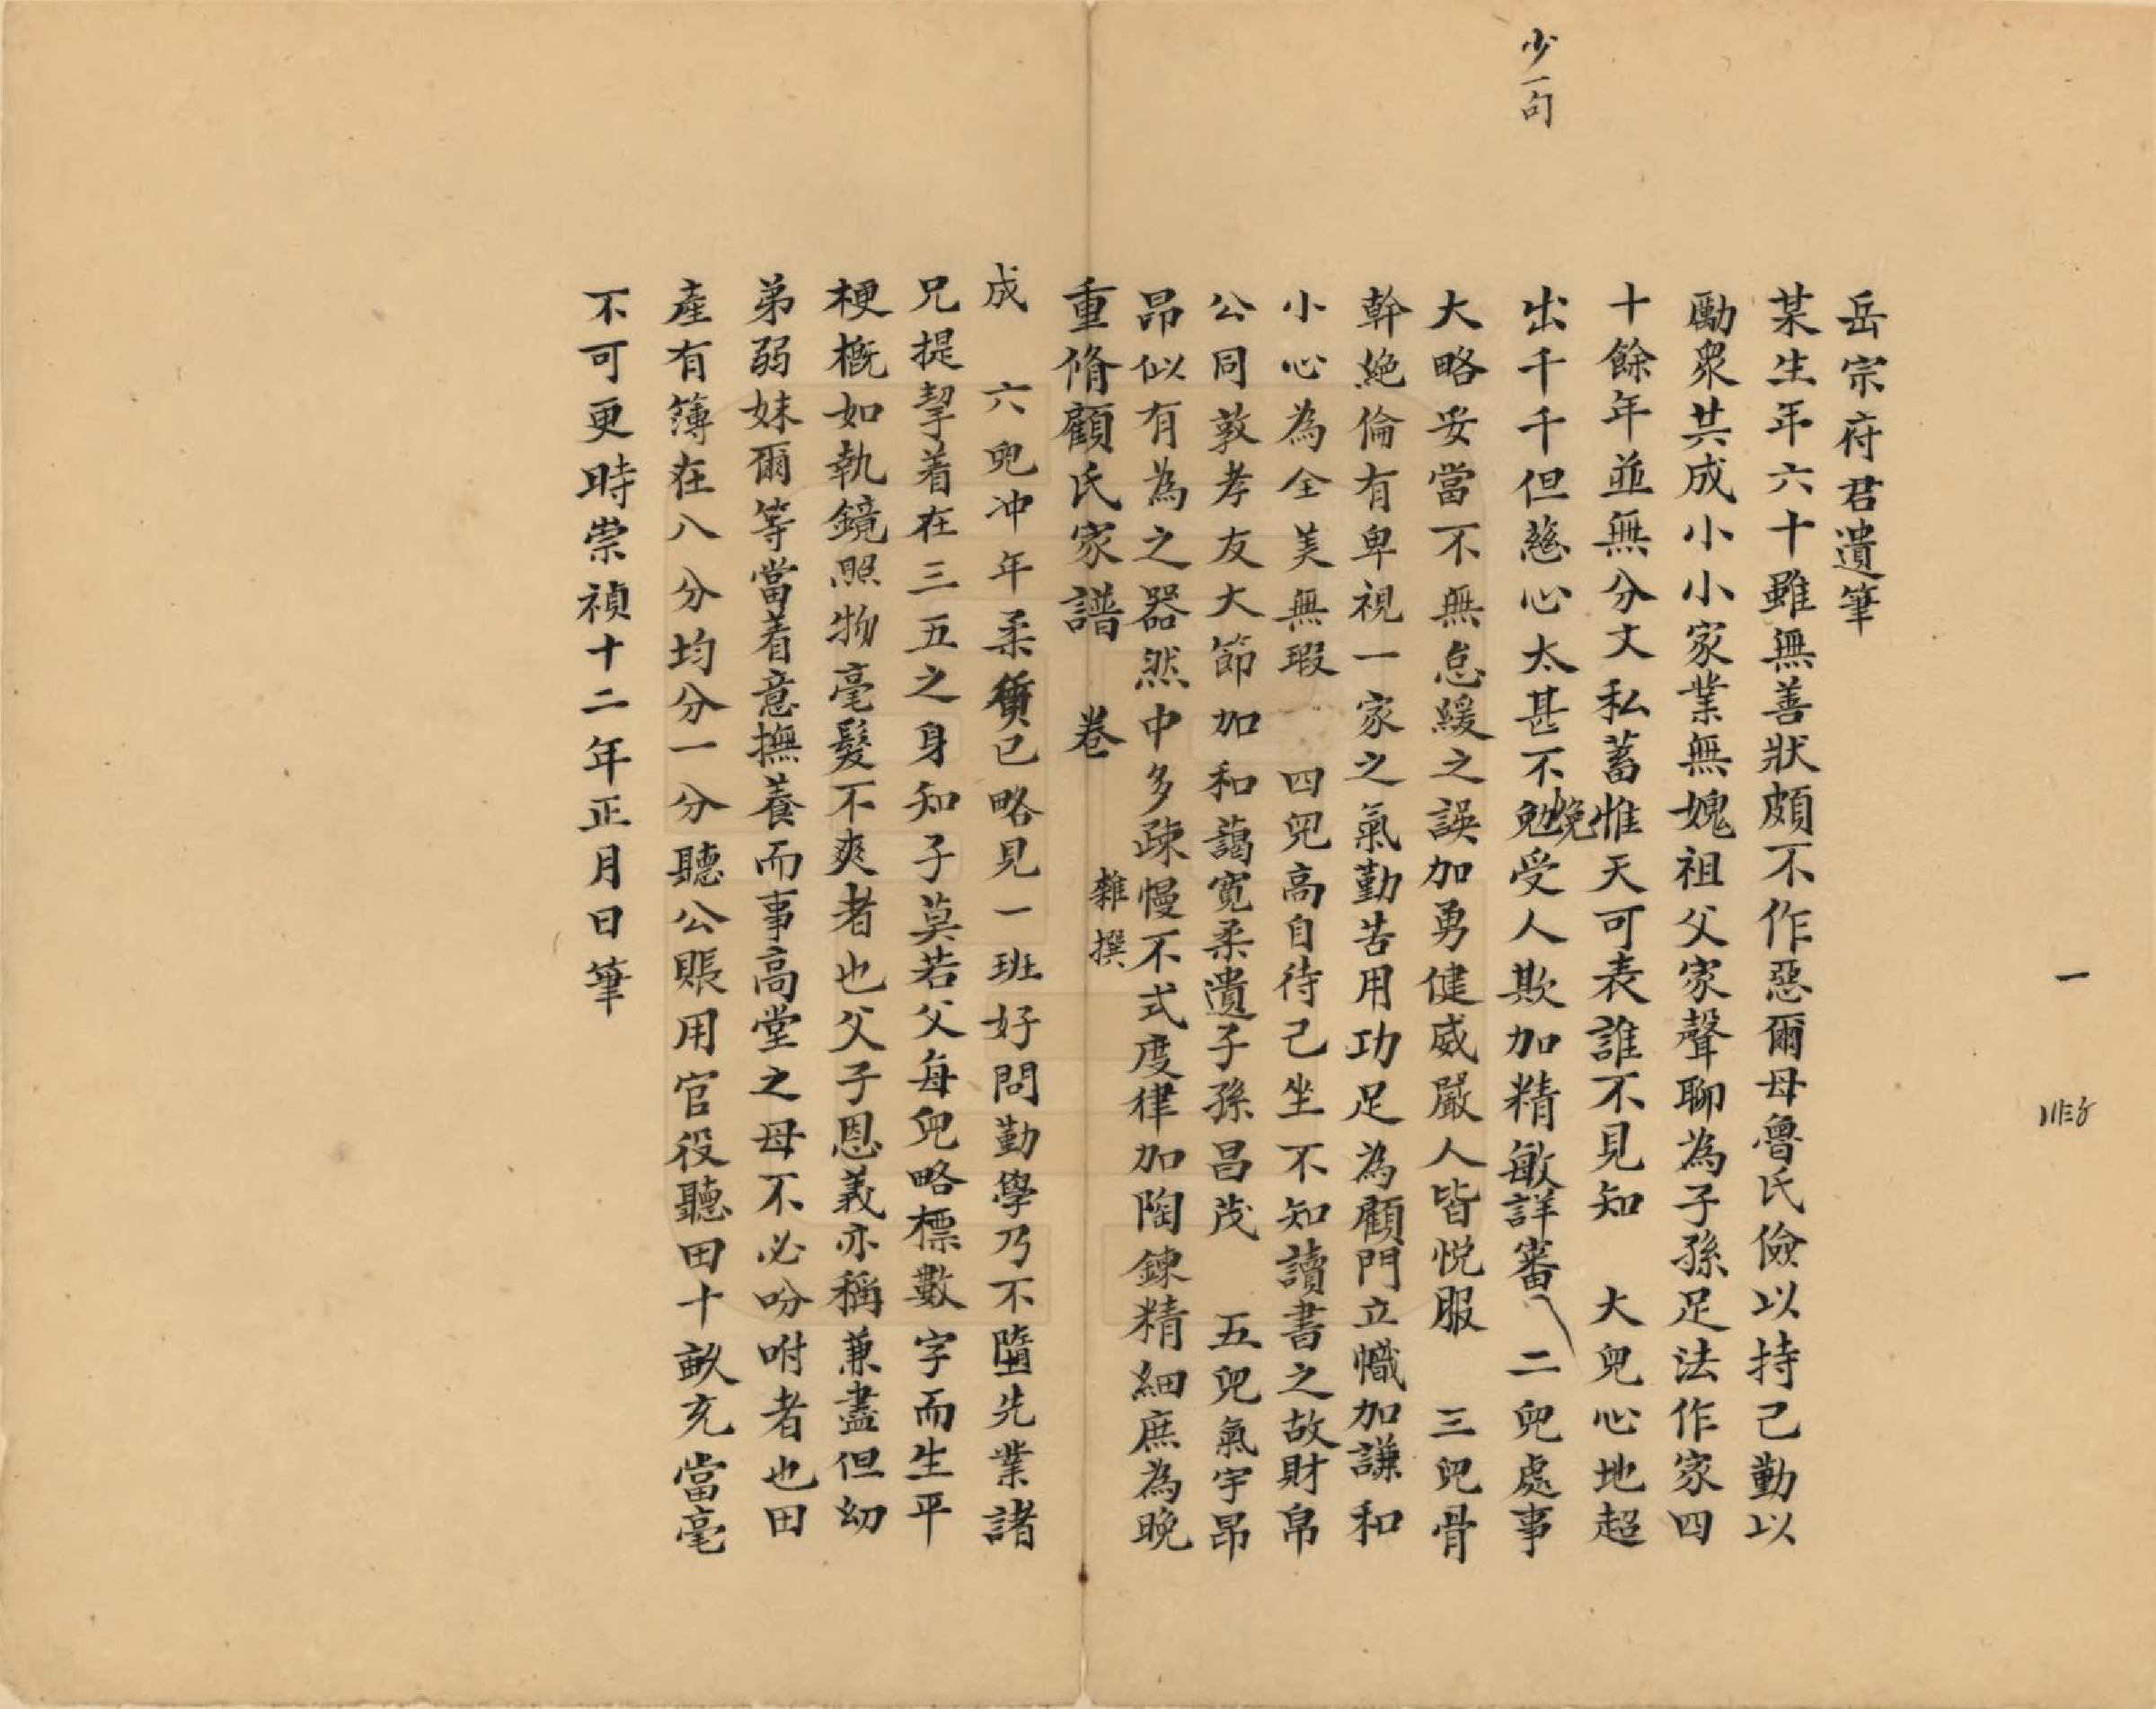 少一句
一
岳宗府君遺筆
某生年六十雖無善狀頗不作惡爾母魯氏儉以持己勤以
勵衆共成小小家業無媿祖父家聲聊為子孫足法作家四
十餘年並無分文私蓄惟天可表誰不見知 大兒心地超
出千千但慈心太甚不勉受人欺加精敏詳審 二兒處事
免
大略妥當不無怠緩之誤加勇健威嚴人皆悅服 三兒骨
幹絶倫有卑視一家之氣勤苦用功足為顧門立幟加謙和
小心為全美無瑕 四兒高自待己坐不知讀書之故財帛
公同敦孝友大節加和藹寬柔遺子孫昌茂 五兒氣宇昂
昂似有為之器然中多疎慢不式度律加陶鍊精細庶為晚
重脩顧氏家譜 卷 雜撰
成 六兒冲年柔質已略見一班好問勤學乃不墮先業諸
兄提挈着在三五之身知子莫若父每兒略標數字而生平
梗概如執鏡照物毫髮不爽者也父子恩義亦稱兼盡但幼
弟弱妹爾等當着意撫養而事高堂之母不必吩咐者也田
產有簿在八分均分一分聽公賬用官役聽田十畝充當毫
不可更時崇禎十二年正月日筆